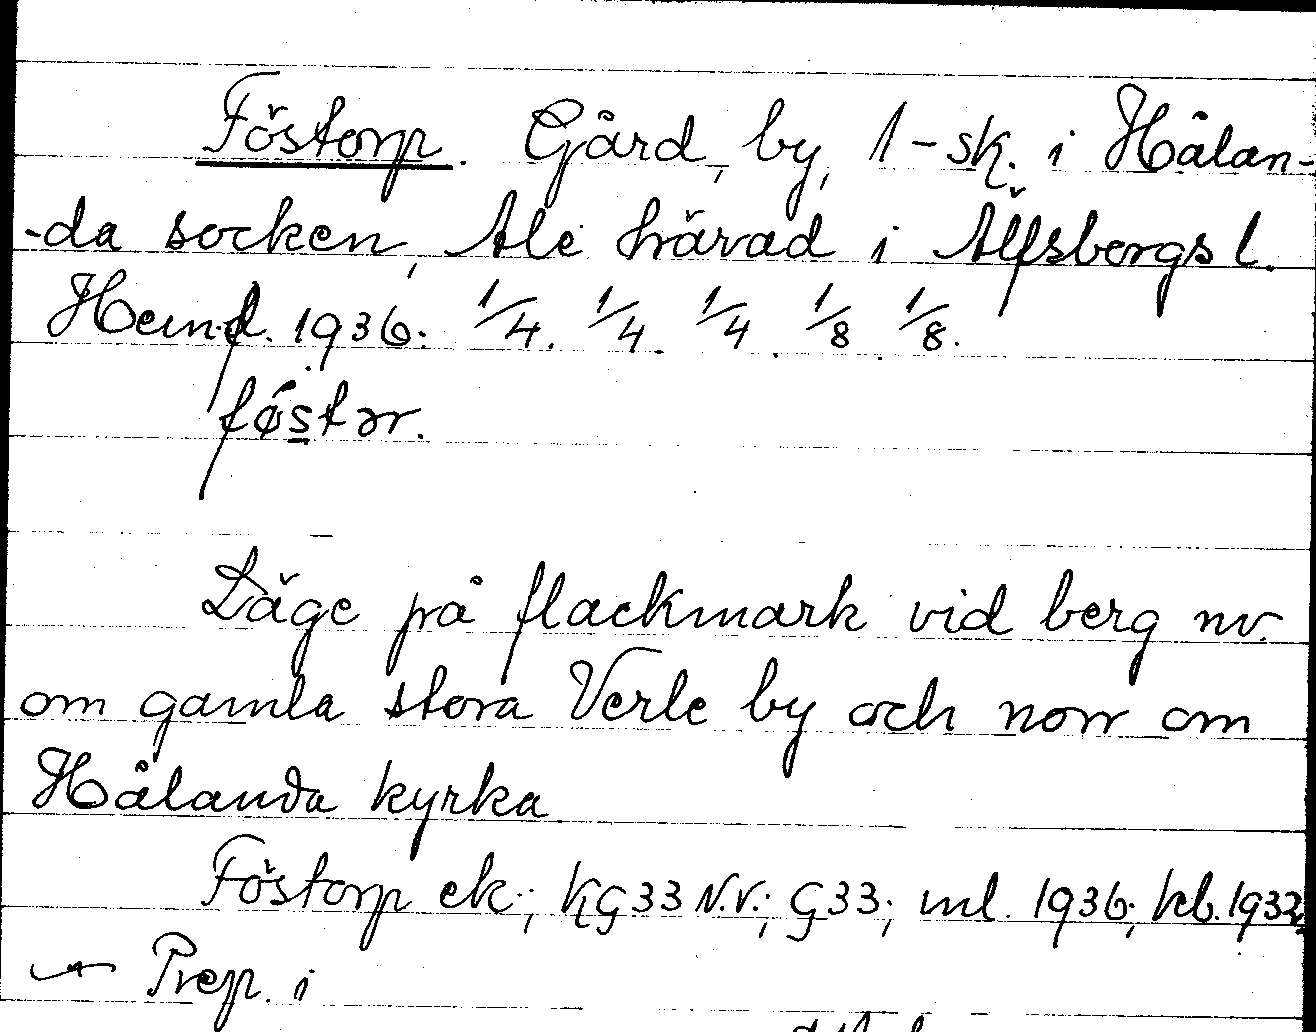 Föstorp. Gård, by, 1-sk. i Hålan-
-da socken, Ale härad i Älfsborgs l.
Hemf. 1936: 1/4. 1/4. 1/4. 1/8. 1/8.
føstər.
Läge på flackmark vid berg nv.
om gamla stora Verle by och norr om
Hålanda kyrka
Föstorp ek.; KG33 N.V.; G33; ml. 1936; kb. 1932;
Prep. i